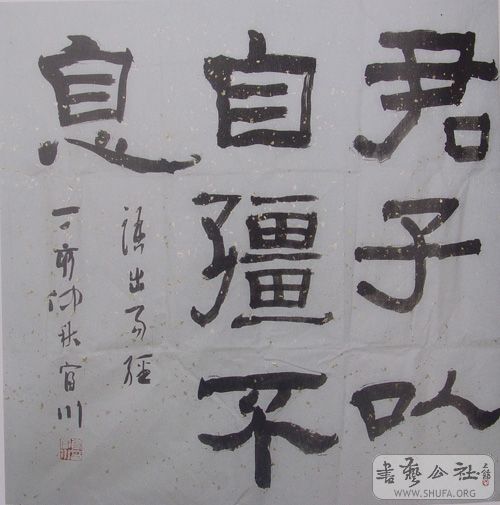 君子以
自彊不
息
語出易經
丁亥仲秋 川
書藝公社
WWW.SHUFA.ORG